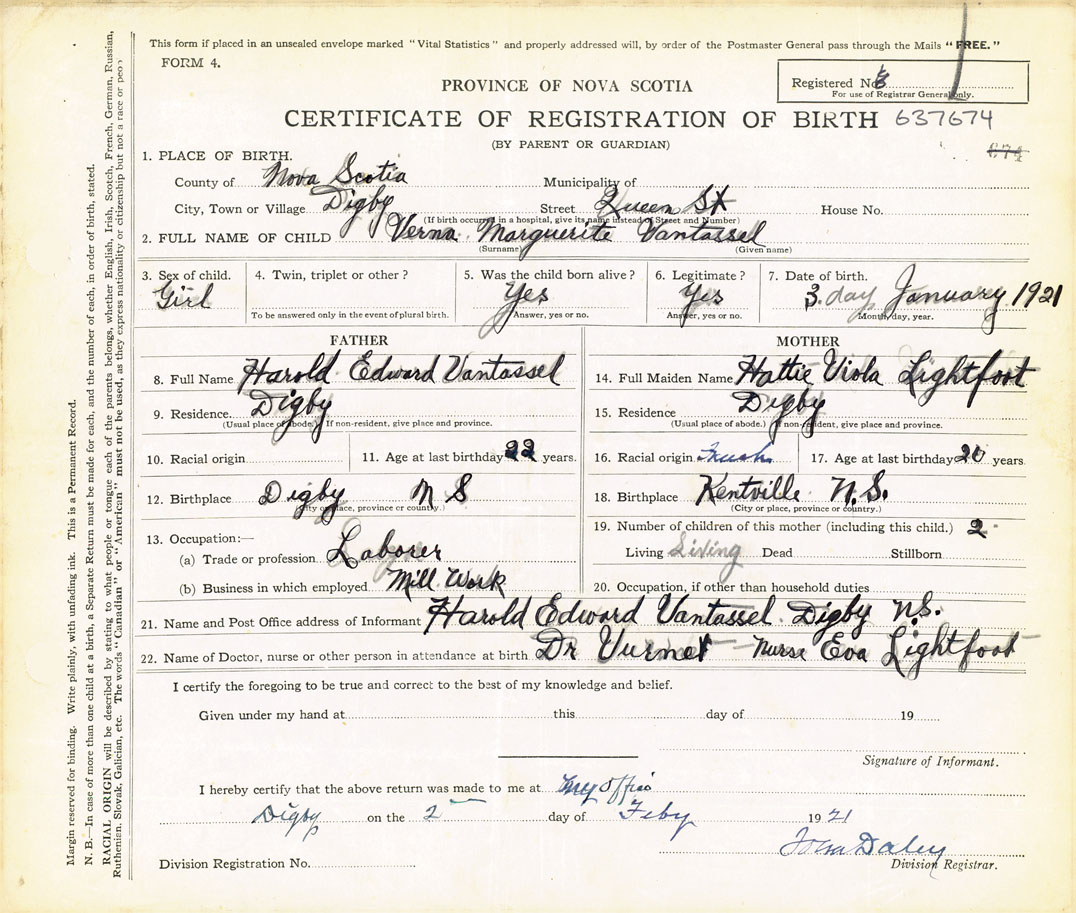 This form if placed in an unsealed envelope marked "Vital Statistics" and properly addressed will, by order of the Postmaster General pass through the Mails "FREE."
FORM 4.
PROVINCE OF NOVA SCOTIA
Registered No.
For use of Registrar General only.
CERTIFICATE OF REGISTRATION OF BIRTH 637674
(BY PARENT OR GUARDIAN)
674
1. PLACE OF BIRTH.
County of Nova Scotia Municipality of
City, Town or Village Digby Street Queen St House No.
(If birth occurred in a hospital, give its name instead of Street and Number)
2. FULL NAME OF CHILD Verna Marguerite Vantassel
(Surname) (Given name)
3. Sex of child. 4. Twin, triplet or other? 5. Was the child born alive? 6. Legitimate? 7. Date of birth.
Girl Yes Yes 3 day January 1921
To be answered only in the event of plural birth. Answer, yes or no. Answer, yes or no. Month, day, year.
FATHER MOTHER
8. Full Name Harold Edward Vantassel 14. Full Maiden Name Hattie Viola Lightfoot
9. Residence. Digby 15. Residence Digby
(Usual place of abode.) If non-resident, give place and province. (Usual place of abode.) If non-resident, give place and province.
10. Racial origin 11. Age at last birthday 22 years. 16. Racial origin 17. Age at last birthday 20 years
12. Birthplace Digby N S 18. Birthplace Kentville N.S.
(City or place, province or country.) (City or place, province or country.)
13. Occupation:— 19. Number of children of this mother (including this child.) 2
(a) Trade or profession Laborer Living Living Dead Stillborn
(b) Business in which employed Mill Work 20. Occupation, if other than household duties
21. Name and Post Office address of Informant Harold Edward Vantassel Digby N.S.
22. Name of Doctor, nurse or other person in attendance at birth. Dr Nurse Eva Lightfoot
I certify the foregoing to be true and correct to the best of my knowledge and belief.
Given under my hand at this day of 19
Signature of Informant.
I hereby certify that the above return was made to me at my office
Digby on the 2 day of Feby 19 21
John Daley
Division Registration No. Division Registrar.
Margin reserved for binding. Write plainly, with unfading ink. This is a Permanent Record.
N. B.—In case of more than one child at a birth, a Separate Return must be made for each, and the number of each, in order of birth, stated.
RACIAL ORIGIN will be described by stating to what people or tongue each of the parents belongs, whether English, Irish, Scotch, French, German, Russian,
Ruthenian, Slovak, Galician, etc. The words "Canadian" or "American" must not be used, as they express nationality or citizenship but not a race or peo